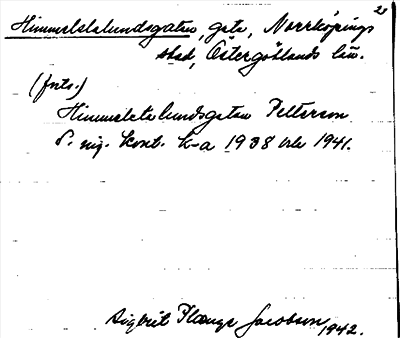 23
Himmelstalundsgatan, gata, Norrköpings
stad, Östergötlands län.
(forts.)
Himmelstalundsgatan Petterson
S. ing. kont. k-a 1938 1941.
Sigbrit Plænge Jacobson 1942.